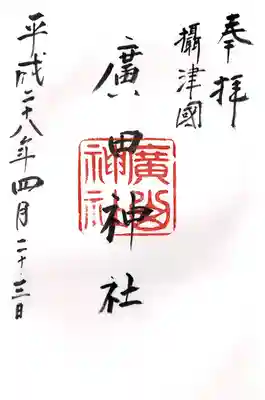 奉拝
攝津國
廣田神社
平成二十八年四月二十三日